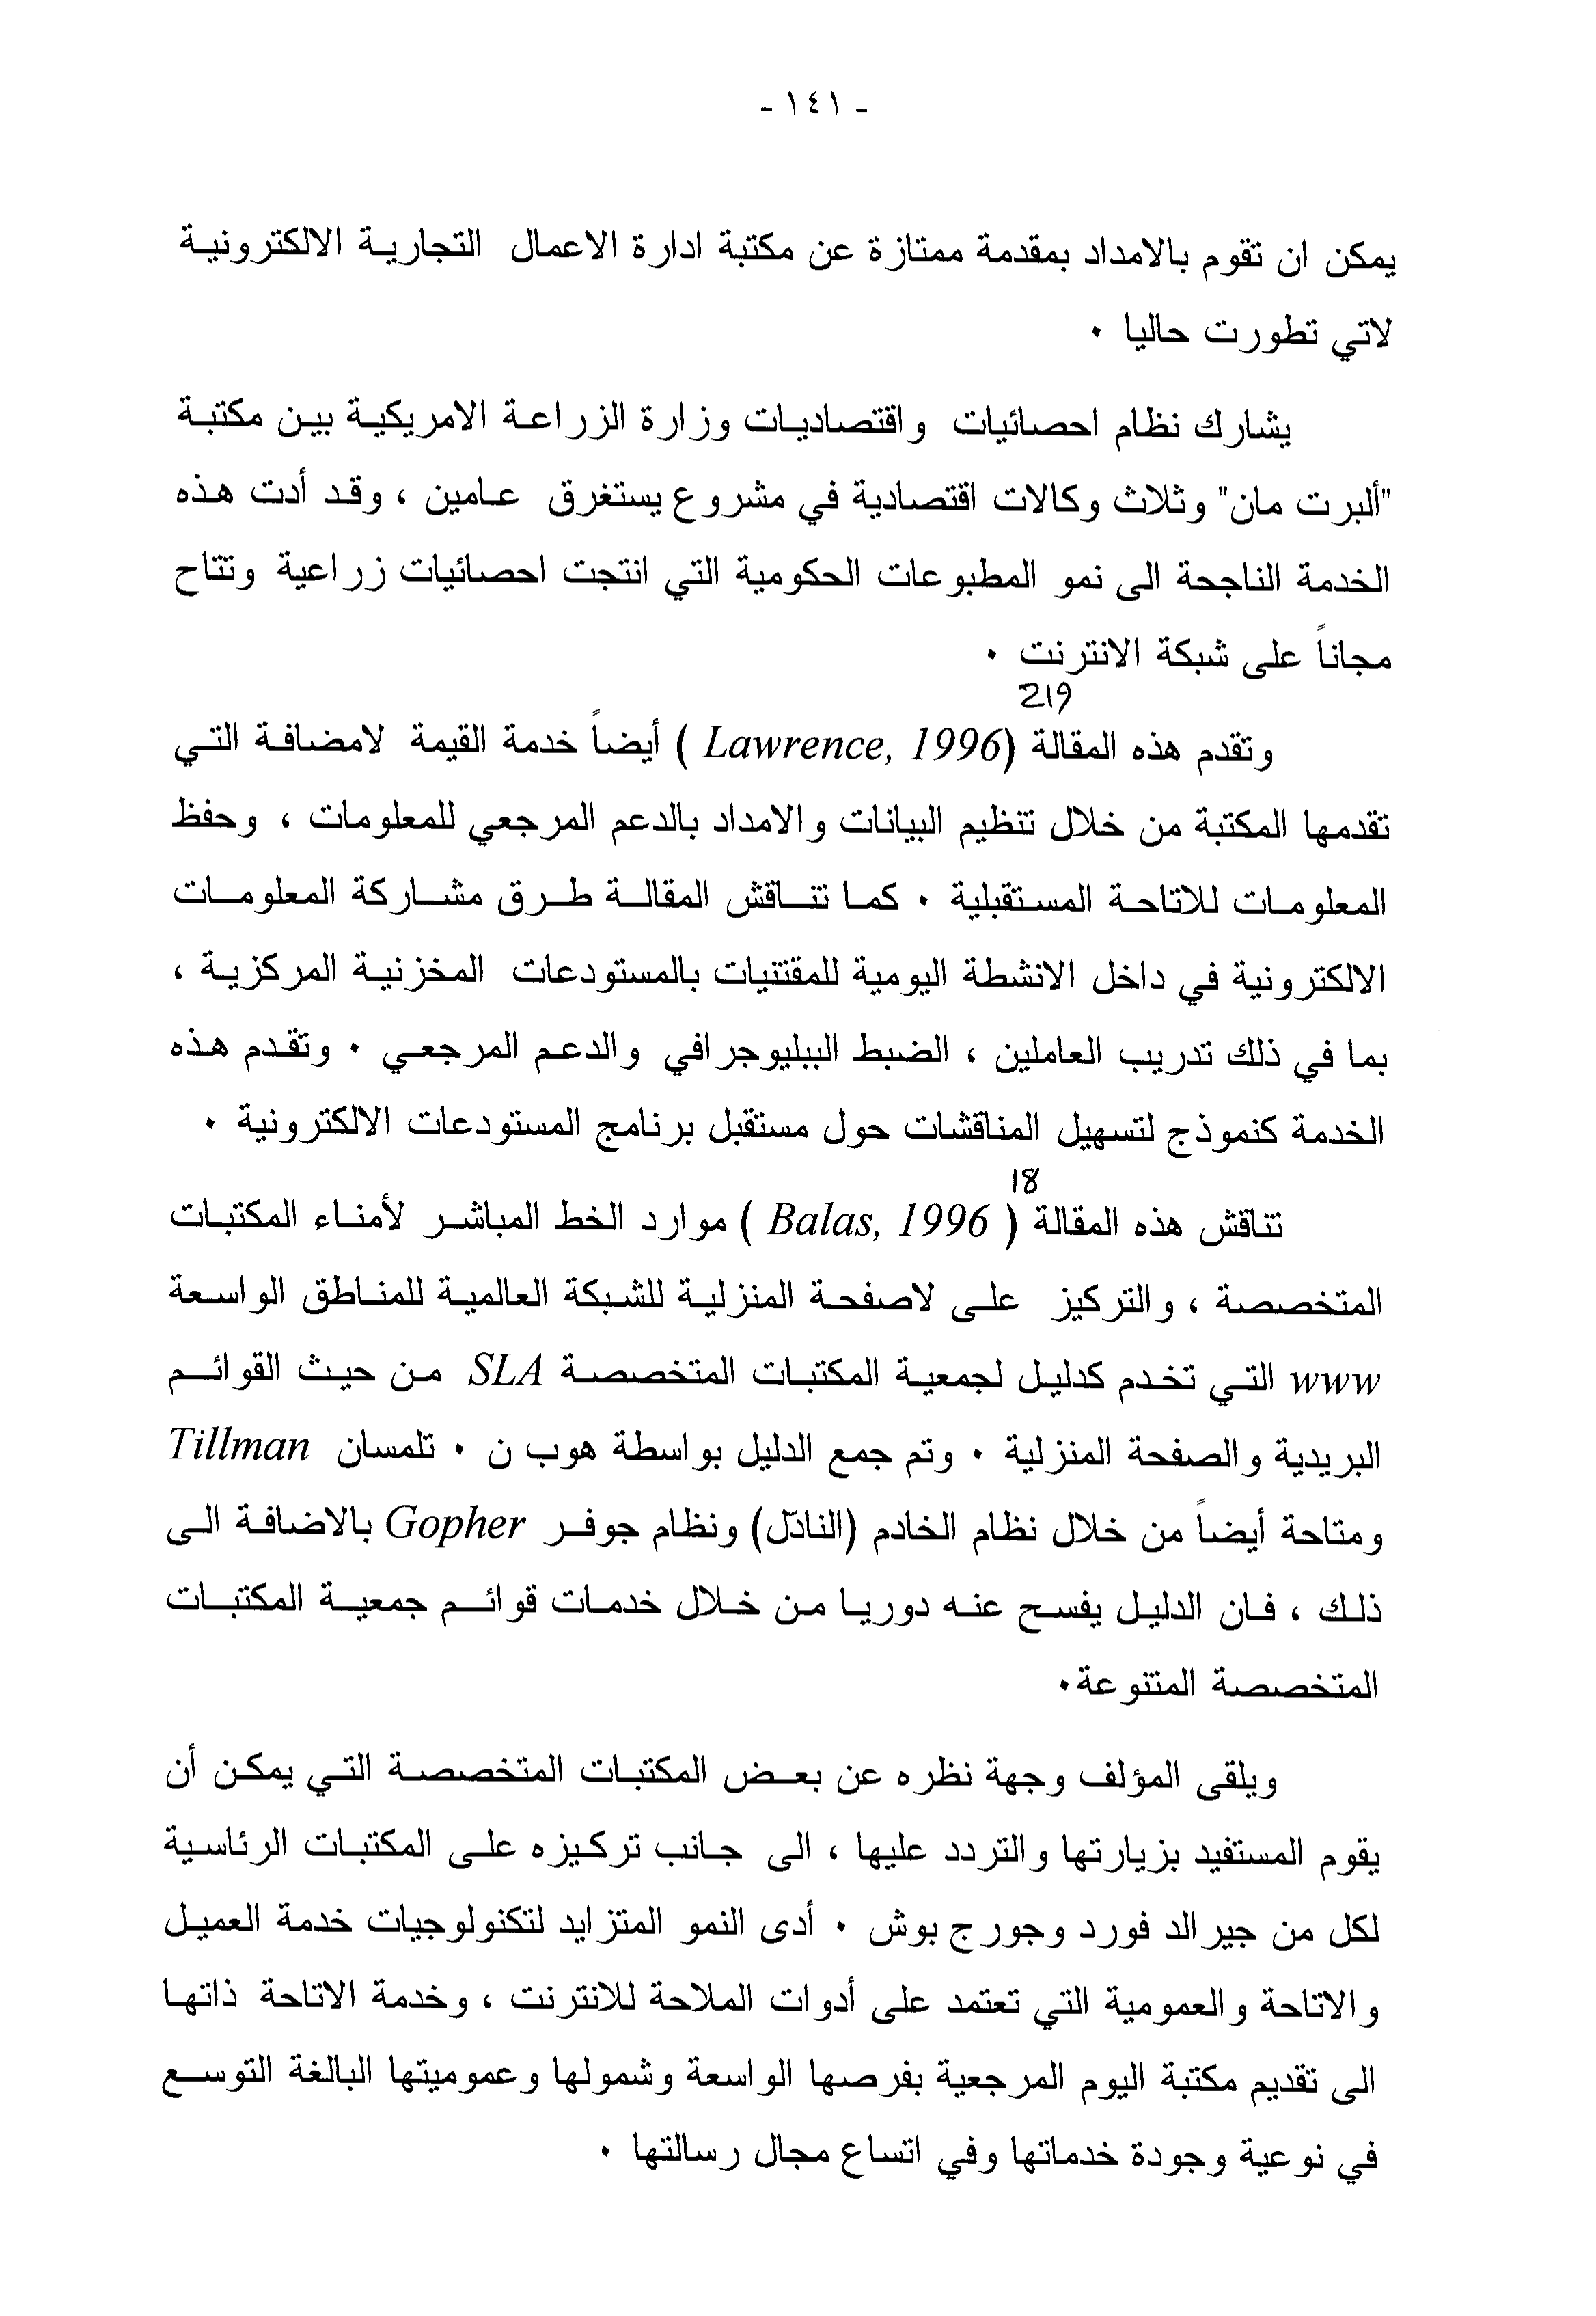 - ١٤١ -
يمكن ان تقوم بالامداد بمقدمة ممتازة عن مكتبة ادارة الاعمال التجارية الالكترونية
لاتي تطورت حاليا ٠
يشارك نظام احصائيات واقتصاديات وزارة الزراعة الامريكية بين مكتبة
"ألبرت مان" وثلاث وكالات اقتصادية في مشروع يستغرق عامين ، وقد أدت هذه
الخدمة الناجحة الى نمو المطبوعات الحكومية التي انتجت احصائيات زراعية وتتاح
مجاناً على شبكة الانترنت ٠
219
وتقدم هذه المقالة (Lawrence, 1996 ) أيضاً خدمة القيمة لامضافة التي
تقدمها المكتبة من خلال تنظيم البيانات والامداد بالدعم المرجعي للمعلومات ، وحفظ
المعلومات للاتاحة المستقبلية ٠ كما تناقش المقالة طرق مشاركة المعلومات
الالكترونية في داخل الانشطة اليومية للمقتنيات بالمستودعات المخزنية المركزية ،
بما في ذلك تدريب العاملين ، الضبط الببليوجرافي والدعم المرجعي ٠ وتقدم هذه
الخدمة كنموذج لتسهيل المناقشات حول مستقبل برنامج المستودعات الالكترونية ٠
18
تناقش هذه المقالة ( Balas, 1996 ) موارد الخط المباشر لأمناء المكتبات
المتخصصة ، والتركيز على لاصفحة المنزلية للشبكة العالمية للمناطق الواسعة
www التي تخدم كدليل لجمعية المكتبات المتخصصة SLA من حيث القوائم
البريدية والصفحة المنزلية ٠ وتم جمع الدليل بواسطة هوب ن ٠ تلمسان Tillman
ومتاحة أيضاً من خلال نظام الخادم (النادّل) ونظام جوفر Gopher بالاضافة الى
ذلك ، فان الدليل يفسح عنه دوريا من خلال خدمات قوائم جمعية المكتبات
المتخصصة المتنوعة٠
ويلقى المؤلف وجهة نظره عن بعض المكتبات المتخصصة التي يمكن أن
يقوم المستفيد بزيارتها والتردد عليها ، الى جانب تركيزه على المكتبات الرئاسية
لكل من جيرالد فورد وجورج بوش ٠ أدى النمو المتزايد لتكنولوجيات خدمة العميل
والاتاحة والعمومية التي تعتمد على أدوات الملاحة للانترنت ، وخدمة الاتاحة ذاتها
الى تقديم مكتبة اليوم المرجعية بفرصها الواسعة وشمولها وعموميتها البالغة التوسع
في نوعية وجودة خدماتها وفي اتساع مجال رسالتها ٠